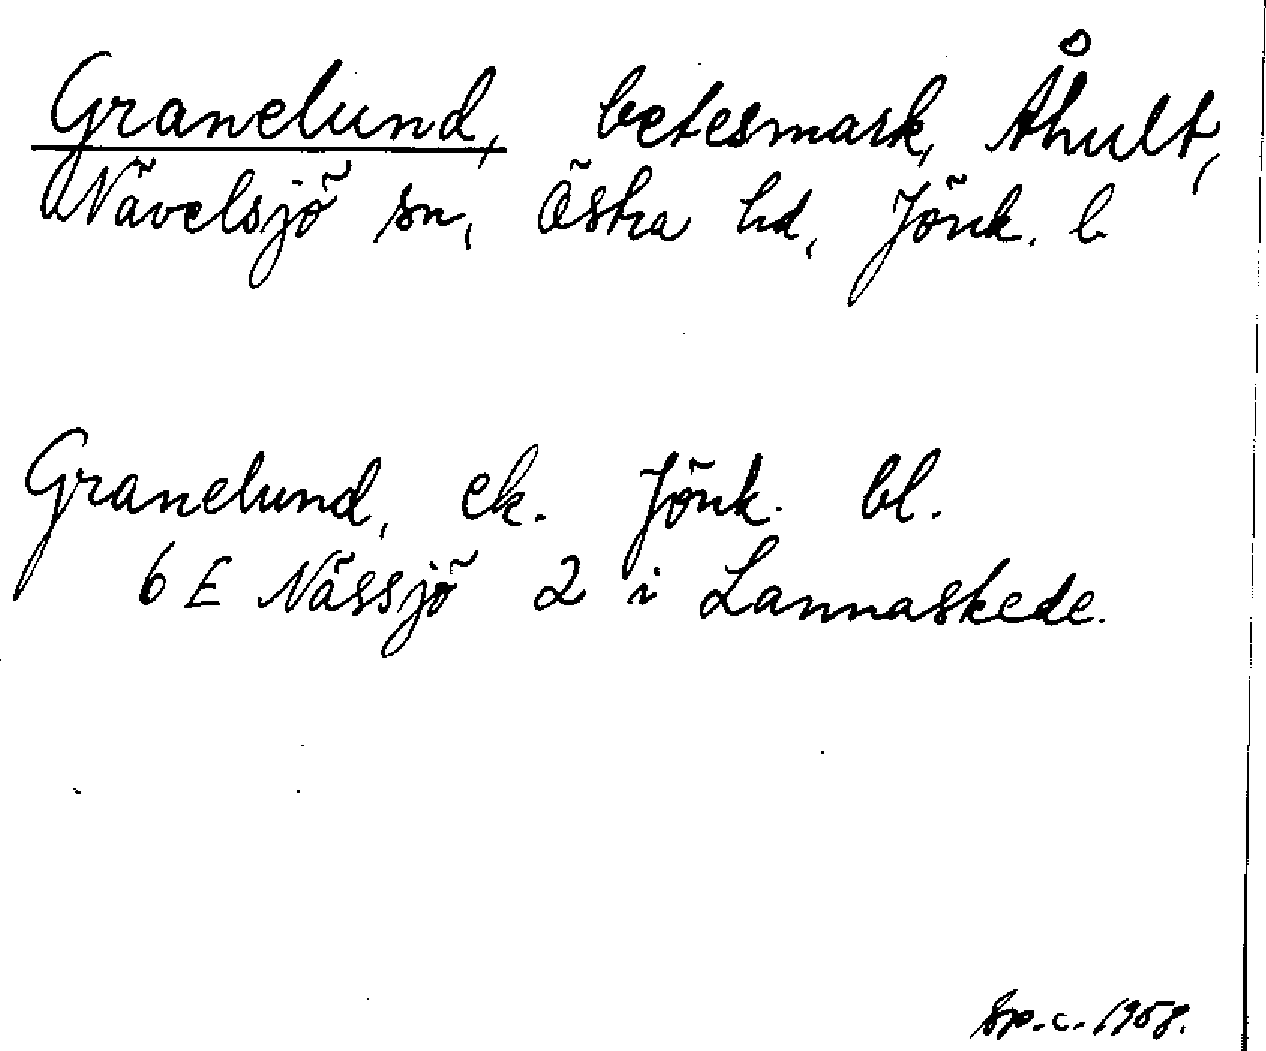 Granelund, betesmark, Åhult,
Nävelsjö sn, Östra hd, Jönk. l
Granelund, ek. Jönk. bl.
6 E Nässjö 2 i Lannaskede.
Sp.c. 1958.